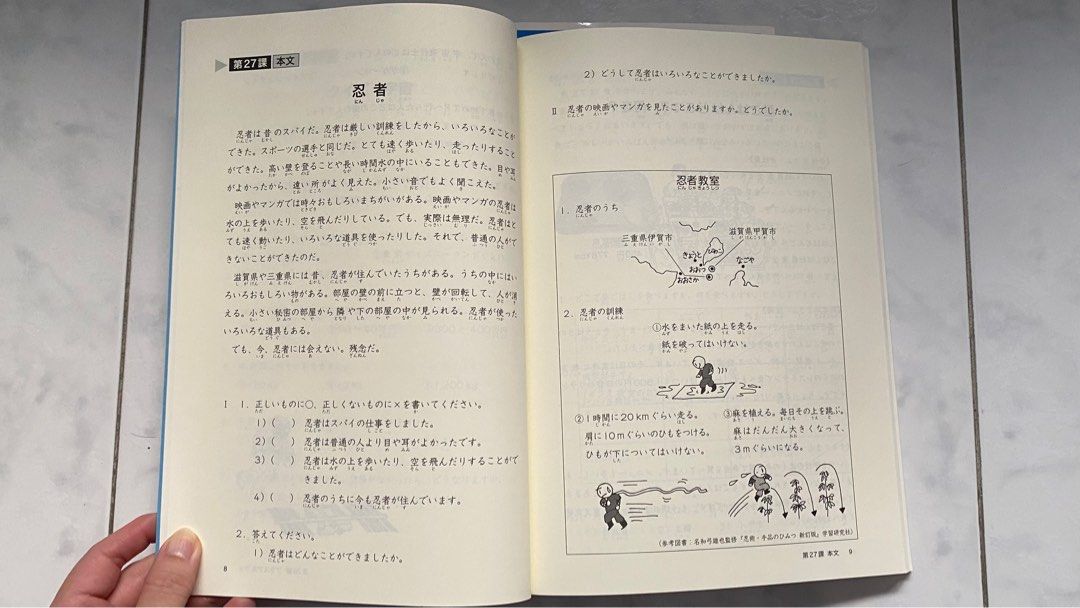 第27課 本文
忍者
にん じゃ
忍者は昔のスパイだ。忍者は厳しい訓練をしたから、いろいろなことが
できた。スポーツの選手と同じだ。とても速く歩いたり、走ったりすること
ができた。高い壁を登ることや長い時間水の中にいることもできた。目や耳
がよかったから、遠い所がよく見えた。小さい音でもよく聞こえた。
映画やマンガでは時々おもしろいまちがいがある。映画やマンガの忍者は
水の上を歩いたり、空を飛んだりしている。でも、実際は無理だ。忍者はと
ても速く動いたり、いろいろな道具を使ったりした。それで、普通の人がで
きないことができたのだ。
滋賀県や三重県には昔、忍者が住んでいたうちがある。うちの中にはい
ろいろおもしろい物がある。部屋の壁の前に立つと、壁が回転して、人が消
える。小さい秘密の部屋から隣や下の部屋の中が見られる。忍者が使った
いろいろな道具もある。
でも、今、忍者には会えない。残念だ。
Ⅰ 1. 正しいものに○、正しくないものに×を書いてください。
1) ( ) 忍者はスパイの仕事をしました。
2) ( ) 忍者は普通の人より目や耳がよかったです。
3) ( ) 忍者は水の上を歩いたり、空を飛んだりすることがで
きました。
4) ( ) 忍者のうちに今も忍者が住んでいます。
2. 答えてください。
1) 忍者はどんなことができましたか。
8
2) どうして忍者はいろいろなことができましたか。
Ⅱ 忍者の映画やマンガを見たことがありますか。どうでしたか。
忍者教室
にんじゃきょうしつ
1. 忍者のうち
三重県伊賀市
みえけんいがし
滋賀県甲賀市
しがけんこうかし
びわこ
きょうと
なごや
おおつ
おおさか
2. 忍者の訓練
①水をまいた紙の上を走る。
紙を破ってはいけない。
②1時間に20kmぐらい走る。
肩に10mぐらいのひもをつける。
ひもが下についてはいけない。
③麻を植える。毎日その上を跳ぶ。
麻はだんだん大きくなって、
3mぐらいになる。
(参考図書:名和弓雄也監修『忍術・手品のひみつ 新訂版』学習研究社)
第27課 本文 9